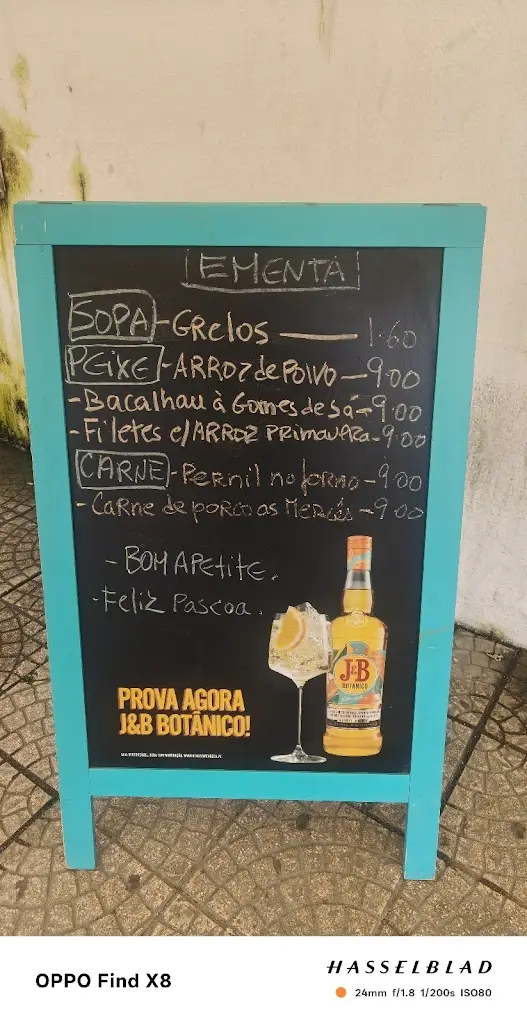 EMENTA
SOPA - GRelos — 1.60
PEIXE - ARROZ de POlVO — 9.00
- Bacalhau à Gomes de Sá - 9.00
- Filetes c/ ARROZ PRIMAVERA - 9.00
CARNE - Pernil no forno - 9.00
- Carne de porco as Mercês - 9.00
- BOM APetite.
- Feliz Pascoa.
J&B
BOTÁNICO
PROVA AGORA
J&B BOTÂNICO!
OPPO Find X8
HASSELBLAD
24mm f/1.8 1/200s ISO80